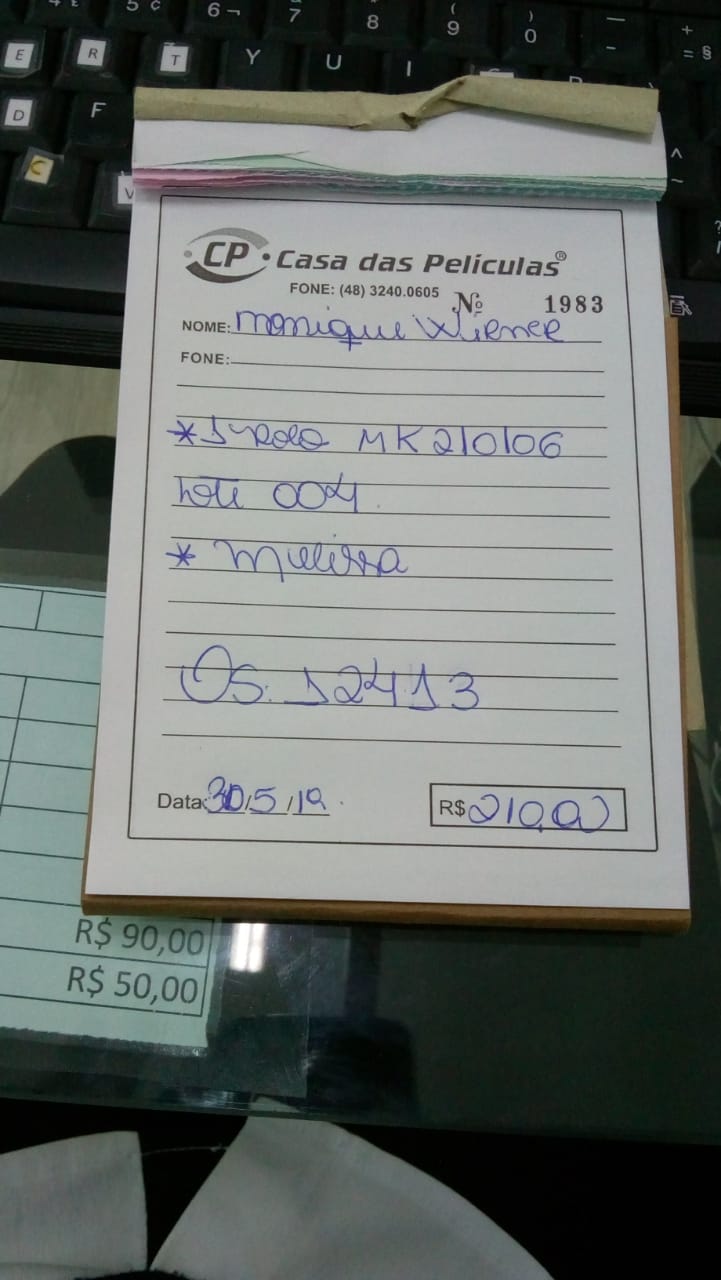 5 ¢
6 ¬
7
8
( 9
) 0
E R T Y U I
D F
Ç
V
CP Casa das Películas®
FONE: (48) 3240.0605 Nº 1983
NOME: Monique Wiener
FONE:
* 1 Rolo MK210106
Lote 004
* Melissa
OS. 12413
Data: 30/5/19
R$ 210,00
R$ 90,00
R$ 50,00